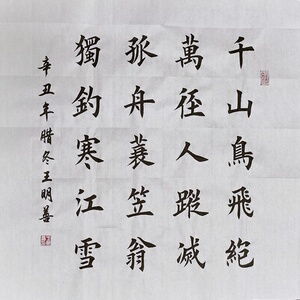 千山鳥飛絕
萬徑人蹤滅
孤舟蓑笠翁
獨釣寒江雪
辛丑年腊冬王明善